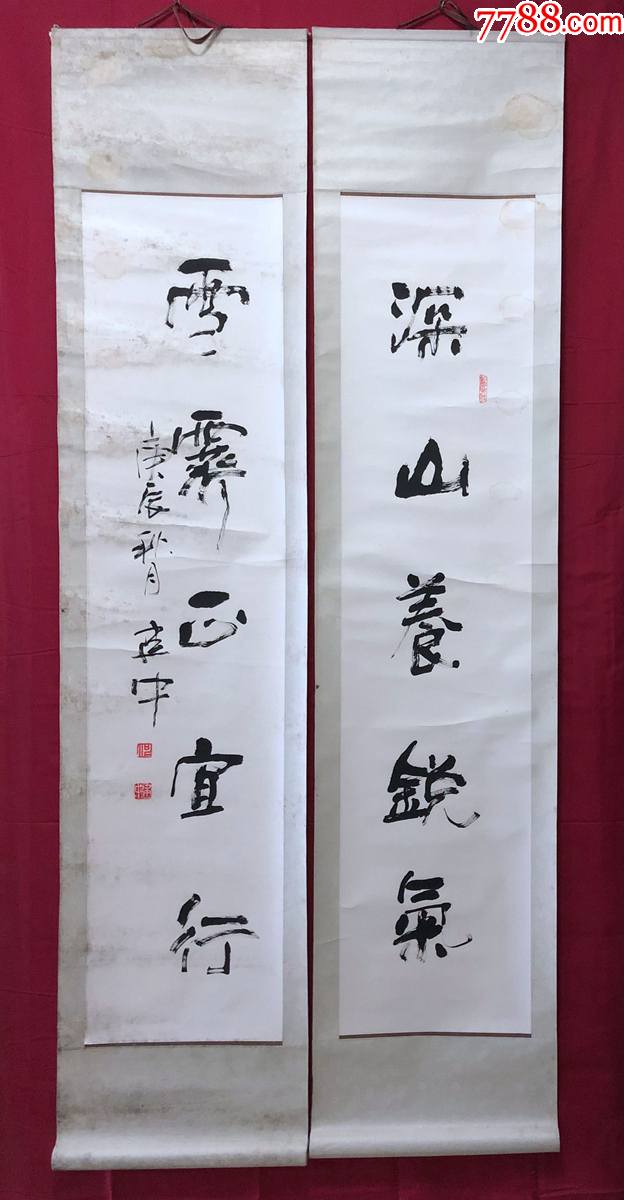 7788.com
深山養銳氣
雪霽正宜行
庚辰秋月